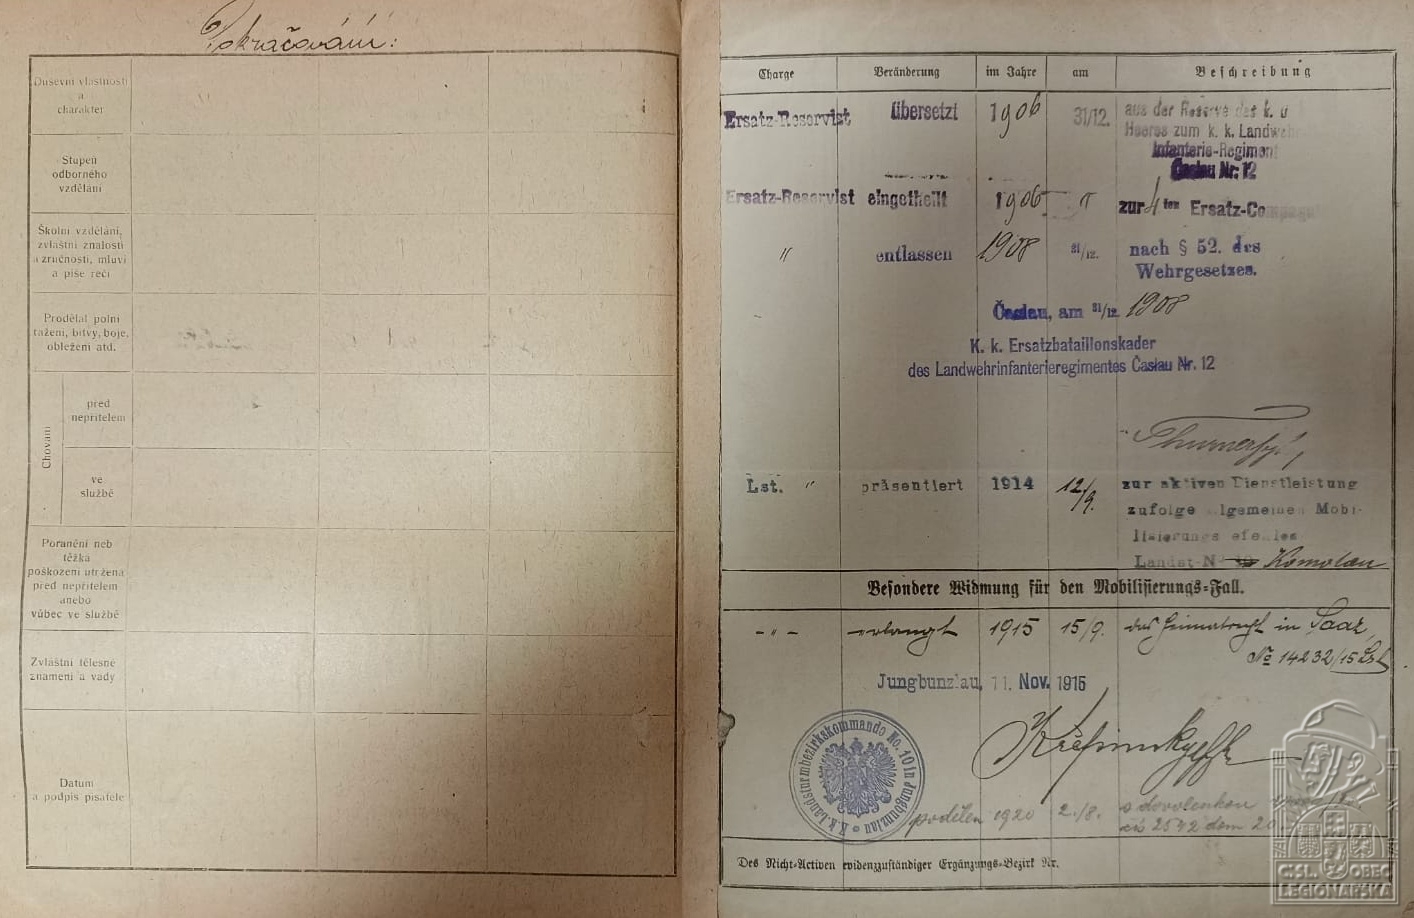 Pokračování:
Duševní vlastnosti
a
charakter
Stupeň
odborného
vzdělání
Školní vzdělání,
zvláštní znalosti
a zručnosti, mluví
a píše řečí
Prodělal polní
tažení, bitvy, boje,
obležení atd.
Chování
před
nepřítelem
ve
službě
Poranění neb
těžká
poškození utržená
před nepřítelem
anebo
vůbec ve službě
Zvláštní tělesné
znamení a vady
Datum
a podpis pisatele
Charge Veränderung im Jahre am Beschreibung
Ersatz-Reservist übersetzt 1906 31/12. aus der Reserve des k. u
Heeres zum k. k. Landweh
Infanterie-Regiment
Časlau Nr. 12
Ersatz-Reservist eingetheilt 1906 " zur 4ten Ersatz-Compagn
" entlassen 1908 31/12. nach § 52. des
Wehrgesetzes.
Časlau, am 31/12. 1908
K. k. Ersatzbataillonskader
des Landwehrinfanterieregimentes Časlau Nr. 12
Lst. " präsentiert 1914 12/9. zur aktiven Dienstleistung
zufolge allgemeinen Mobi-
lisierungs
Landst. N Komotau
Besondere Widmung für den Mobilisierungs-Fall.
- " - erlangt 1915 15/9. das Heimatrecht in Saar,
No 14232/15 Lst
Jungbunzlau, 11. Nov. 1915
K.k. Landsturmbezirkskommando No. 10 in Jungbunzlau
podělen 1920 2./8. s dovolenkou
čís 2542 dem 20
Des Nicht-Activen evidenzzuständiger Ergänzungs-Bezirk Nr.
ČSL. OBEC
LEGIONÁŘSKÁ